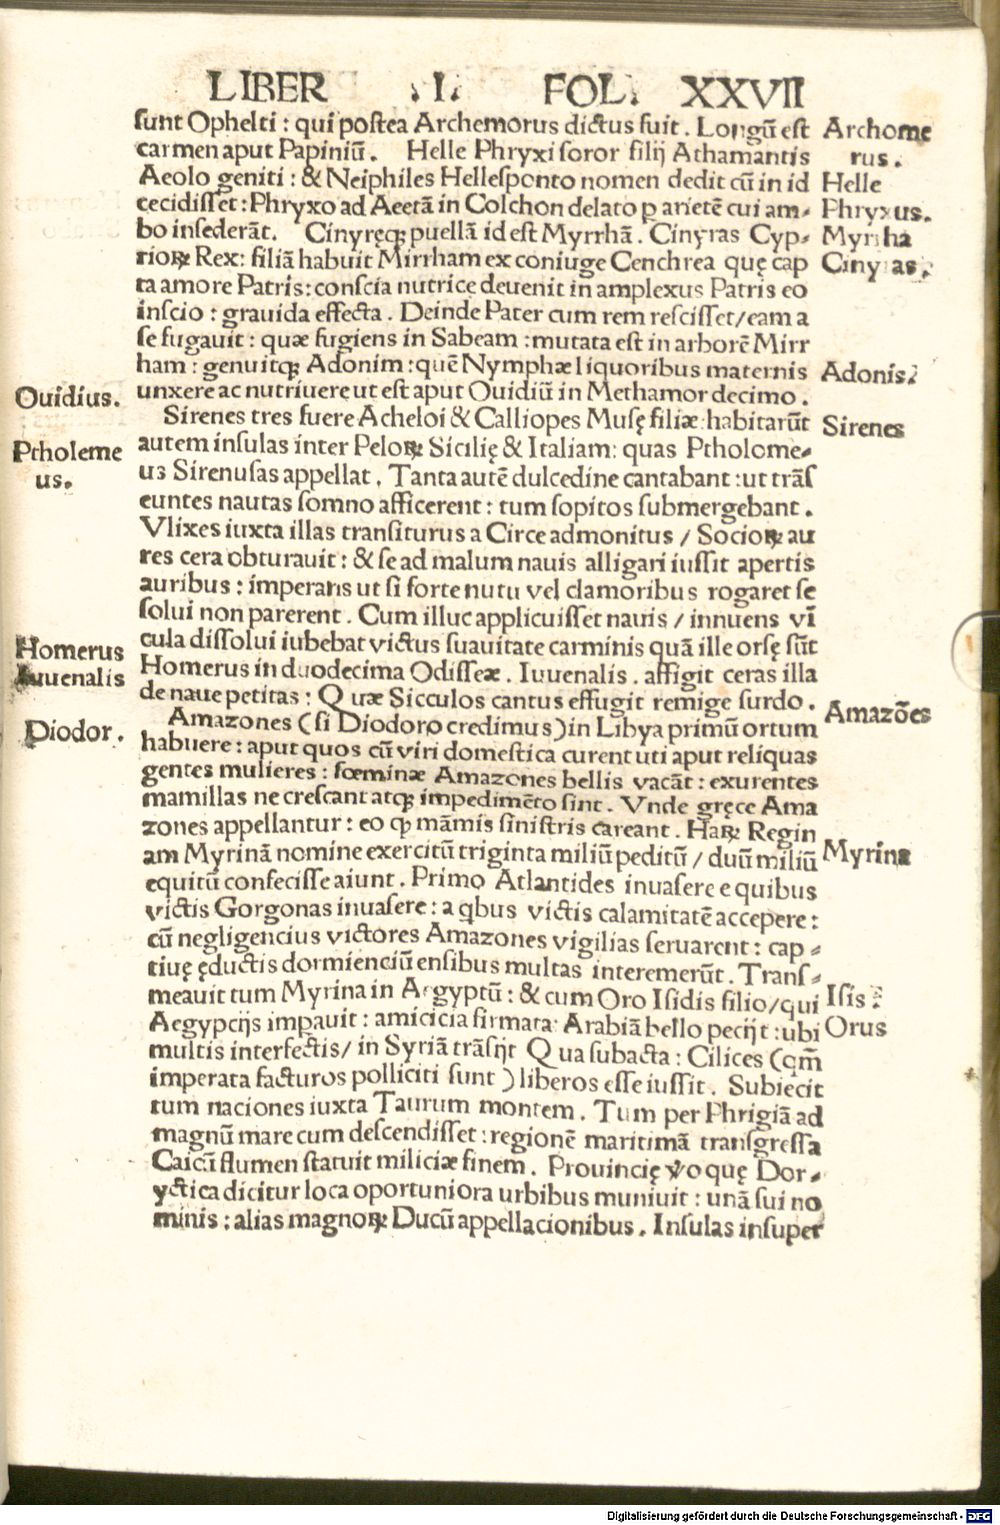 LIBER .I. FOL. XXVII
sunt Ophelti : qui postea Archemorus dictus fuit . Longũ est
carmen aput Papiniũ . Helle Phryxi soror filij Athamantis
Aeolo geniti : & Neiphiles Hellesponto nomen dedit cũ in id
cecidisset : Phryxo ad Aeetã in Colchon delato p arietẽ cui am⸗
bo insederãt . Cinyręqꝫ puellã id est Myrrhã . Cinyras Cyp⸗
rioꝝ Rex : filiã habuit Mirrham ex coniuge Cenchrea quę cap
ta amore Patris : conscia nutrice deuenit in amplexus Patris eo
inscio : grauida effecta . Deinde Pater cum rem rescisset / eam a
se fugauit : quæ fugiens in Sabeam : mutata est in arborẽ Mirr
ham : genuitqꝫ Adonim : quẽ Nymphæ liquoribus maternis
unxere ac nutriuere ut est aput Ouidiũ in Methamor decimo .
Sirenes tres fuere Acheloi & Calliopes Musę filiæ : habitarũt
autem insulas inter Peloꝝ Sicilię & Italiam : quas Ptholome⸗
us Sirenusas appellat . Tanta autẽ dulcedine cantabant : ut trãs
euntes nautas somno afficerent : tum sopitos submergebant .
Vlixes iuxta illas transiturus a Circe admonitus / Socioꝝ au
res cera obturauit : & se ad malum nauis alligari iussit apertis
auribus : imperans ut si forte nutu vel clamoribus rogaret se
solui non parerent . Cum illuc applicuisset nauis / innuens vĩ
cula dissolui iubebat victus suauitate carminis quã ille orsę sũt
Homerus in duodecima Odisseæ . Iuuenalis . affigit ceras illa
de naue petitas : Quæ Sicculos cantus effugit remige surdo .
Amazones ( si Diodoro credimus ) in Libya primũ ortum
habuere : aput quos cũ viri domestica curent uti aput reliquas
gentes mulieres : fœminæ Amazones bellis vacãt : exurentes
mamillas ne crescant atqꝫ impedimẽto sint . Vnde gręce Ama
zones appellantur : eo ꝙ mãmis sinistris careant . Haꝝ Regin
am Myrinã nomine exercitũ triginta miliũ peditũ / duũ miliũ
equitũ confecisse aiunt . Primo Atlantides inuasere e quibus
victis Gorgonas inuasere : a qbus victis calamitatẽ accepere :
cũ negligencius victores Amazones vigilias seruarent : cap⸗
tiuę ęductis dormienciũ ensibus multas interemerũt . Trans⸗
meauit tum Myrina in Aegyptũ : & cum Oro Isidis filio / qui
Aegypcijs impauit : amicicia firmata : Arabiã bello pecijt : ubi
multis interfectis / in Syriã trãsijt Qua subacta : Cilices ( qm̃
imperata facturos polliciti sunt ) liberos esse iussit . Subiecit
tum naciones iuxta Taurum montem . Tum per Phrigiã ad
magnũ mare cum descendisset : regionẽ maritimã transgressa
Caicũ flumen statuit miliciæ finem . Prouincię ꝟo quę Dor⸗
yctica dicitur loca oportuniora urbibus muniuit : unã sui no
minis : alias magnoꝝ Ducũ appellacionibus . Insulas insuper
Archome
rus .
Helle
Phryxus .
Myrrha
Cinyras .
Adonis .
Sirenes
Amazões
Myrina
Isis
Orus
Ouidius .
Ptholeme
us .
Homerus
Iuuenalis
Diodor .
Digitalisierung gefördert durch die Deutsche Forschungsgemeinschaft - DFG